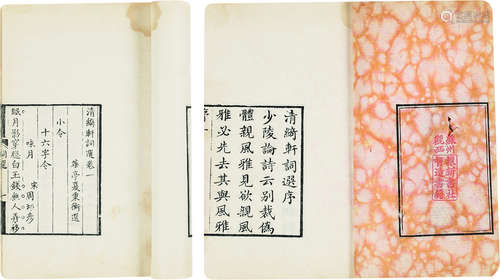 蘇州振新書社
觀西
清綺軒詞選序
少陵論詩云別裁偽
體親風雅見欲親風
雅必先去其與風雅
序 一
清綺軒詞選卷一
華亭夏秉衡選
小令
十六字令
咏月 宋周邦彥
眠月影穿牕白玉錢無人弄移
詞選